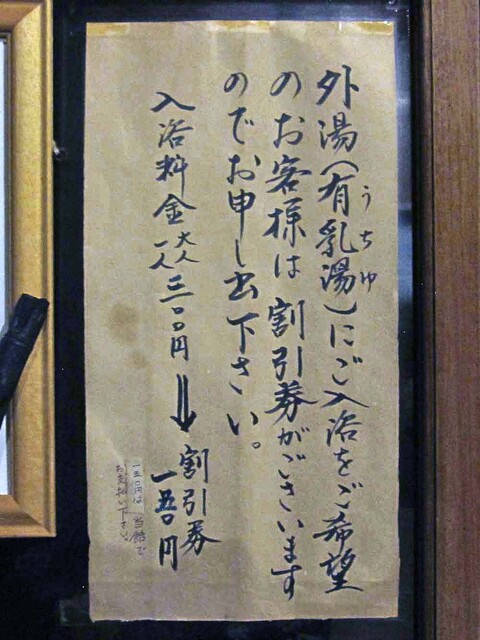 外湯(有乳湯)にご入浴をご希望
うちゆ
のお客様は割引券がございます
のでお申し出下さい。
入浴料金大人一人三〇〇円⇒割引券一五〇円
一五〇円は当館で
お支払い下さい